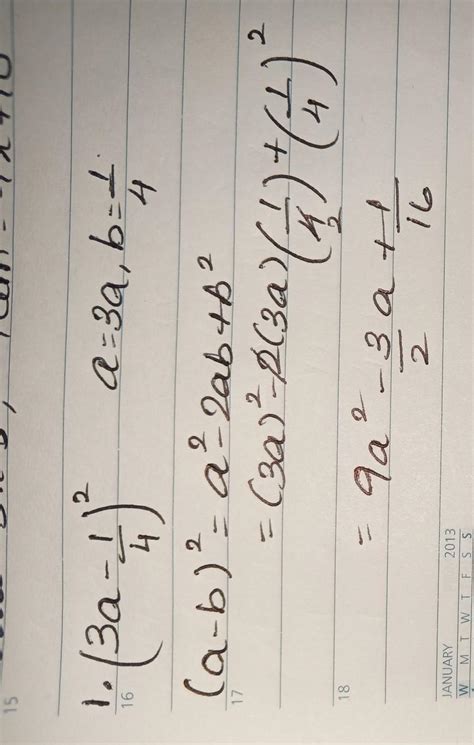 15
1. (3a - 1/4)² a = 3a, b = 1/4
16
(a - b)² = a² - 2ab + b²
17
= (3a)² - 2(3a)(1/4)+(1/4)²
2
= 9a² - 3/2 a + 1/16
18
JANUARY 2013
W M T W T F S S